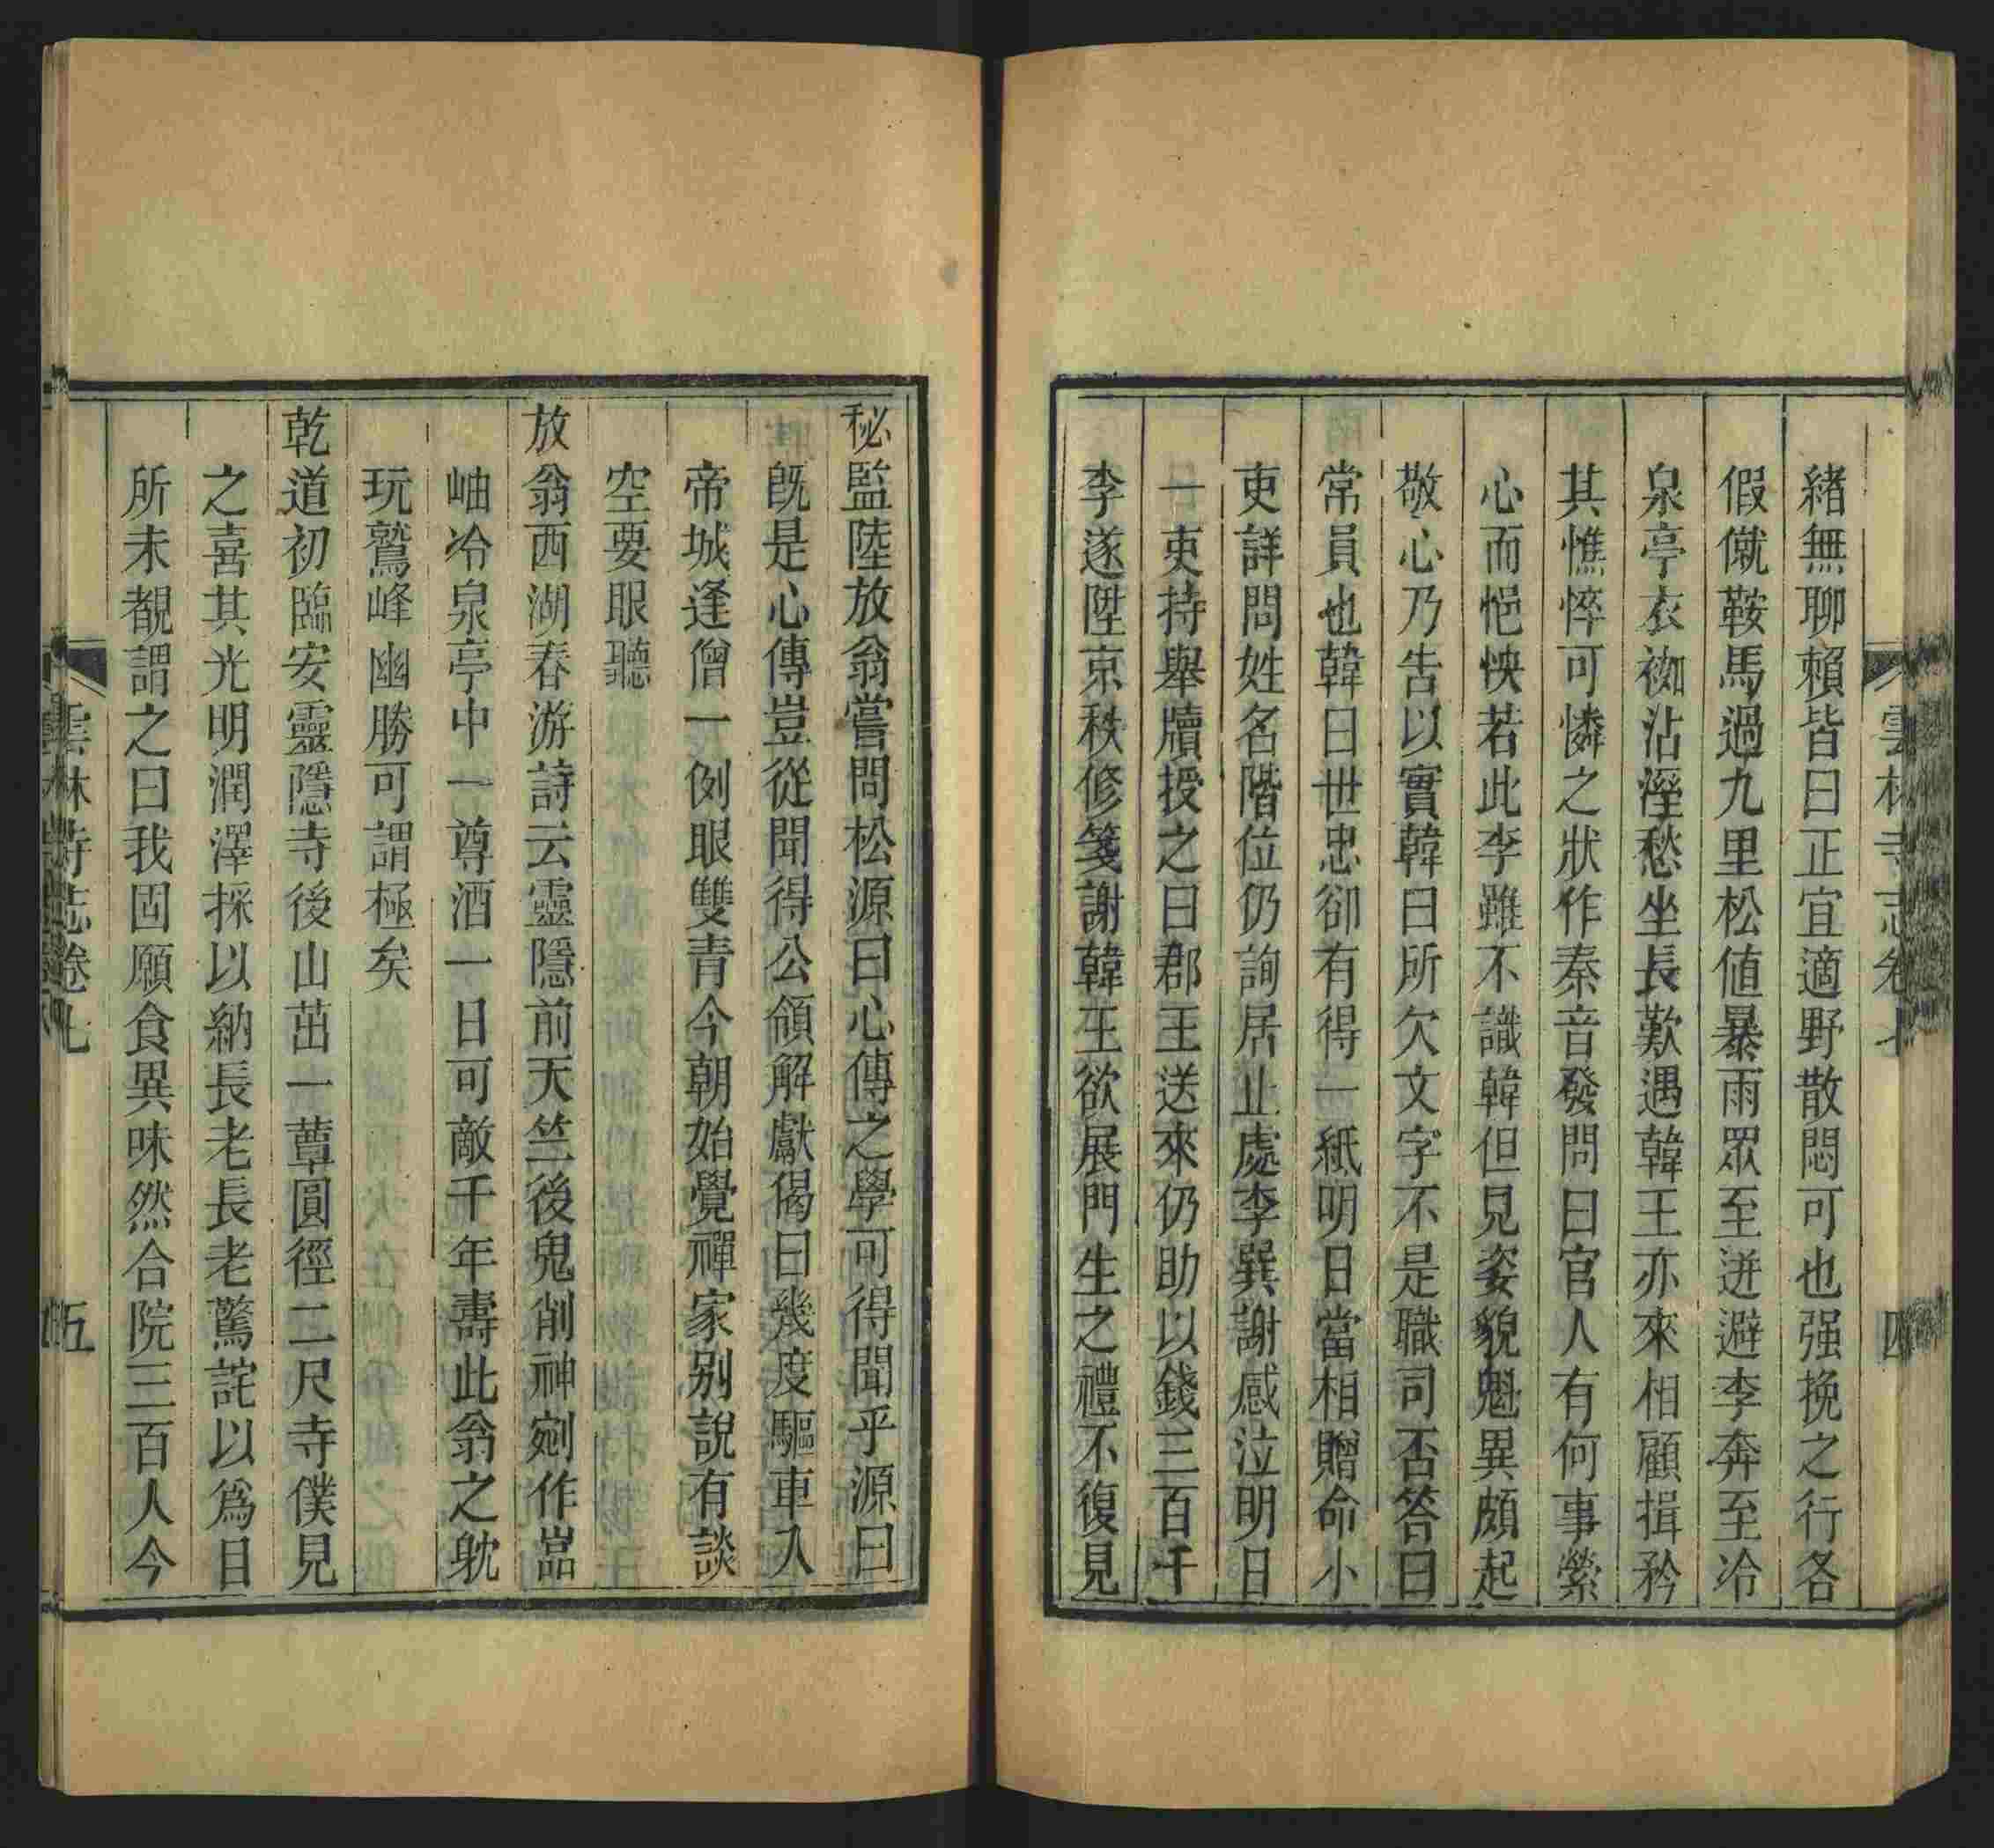 緒無聊賴皆曰正宜適野散悶可也强挽之行各
假僦鞍馬過九里松値暴雨眾至迸避李奔至冷
泉亭衣袽沾溼愁坐長歎遇韓王亦來相顧揖矜
其憔悴可憐之狀作秦音發問曰官人有何事縈
心而悒怏若此李雖不識韓但見姿貌魁異頗起
敬心乃告以實韓曰所欠文字不是職司否答曰
常員也韓曰世忠卻有得一紙明日當相贈命小
吏詳問姓名階位仍詢居止處李巽謝感泣明日
一吏持舉牘授之曰郡王送來仍助以錢三百千
李遂陞京秩修箋謝韓王欲展門生之禮不復見
秘監陸放翁嘗問松源曰心傳之學可得聞乎源曰
旣是心傳豈從聞得公領解獻偈曰幾度驅車入
帝城逢僧一例眼雙青今朝始覺禪家别說有談
空要眼聽
放翁西湖春游詩云靈隱前天竺後鬼削神剜作嵓
岫冷泉亭中一尊酒一日可敵千年壽此翁之躭
玩鷲峰幽勝可謂極矣
乾道初臨安靈隱寺後山茁一蕈圓徑二尺寺僕見
之喜其光明潤澤採以納長老長老驚詫以爲目
所未覩謂之曰我固願食異味然合院三百人今
雲林寺志卷七
五